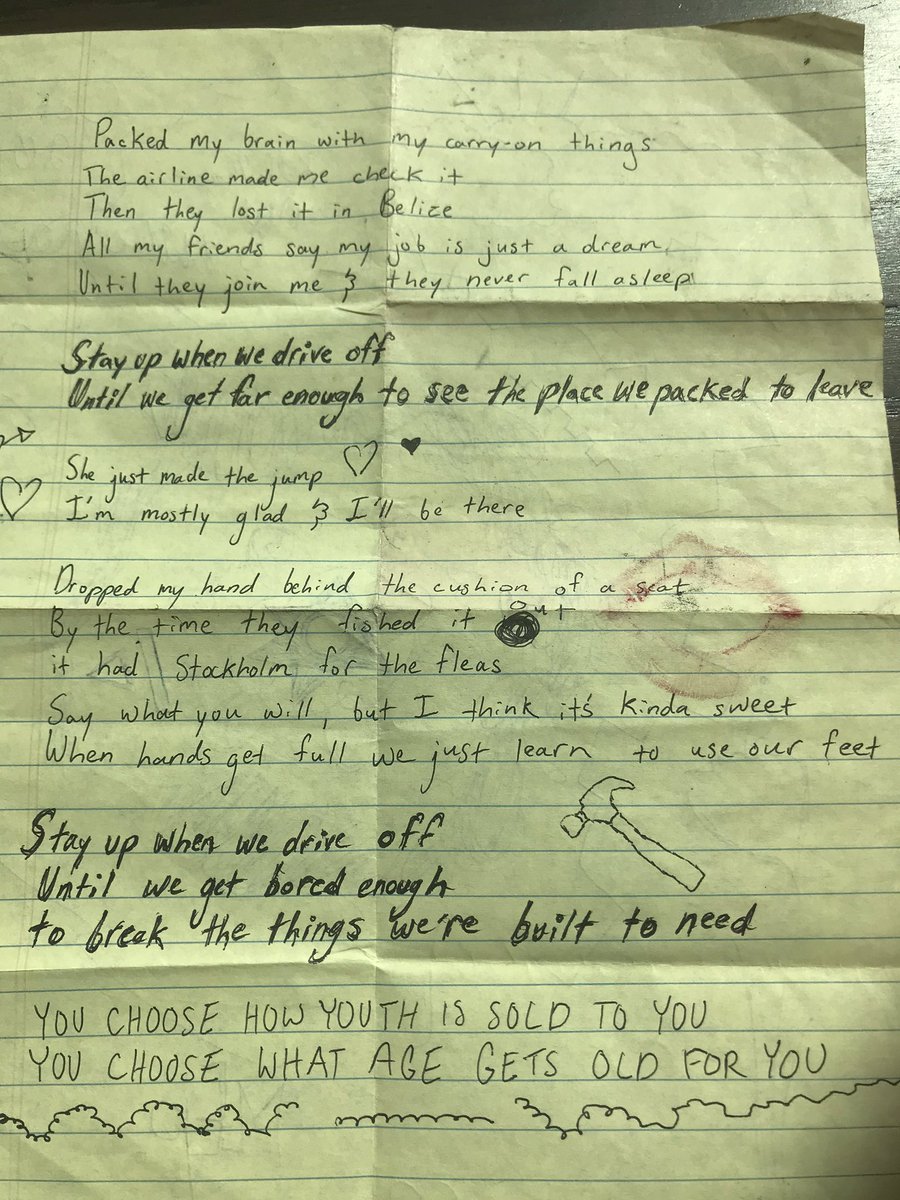 Packed my brain with my carry-on things
The airline made me check it
Then they lost it in Belize
All my friends say my job is just a dream
Until they join me & they never fall asleep
Stay up when we drive off
Until we get far enough to see the place we packed to leave
She just made the jump
I'm mostly glad & I'll be there
Dropped my hand behind the cushion of a seat
By the time they fished it out
it had Stockholm for the fleas
Say what you will, but I think it's kinda sweet
When hands get full we just learn to use our feet
Stay up when we drive off
Until we get bored enough
to break the things we're built to need
YOU CHOOSE HOW YOUTH IS SOLD TO YOU
YOU CHOOSE WHAT AGE GETS OLD FOR YOU